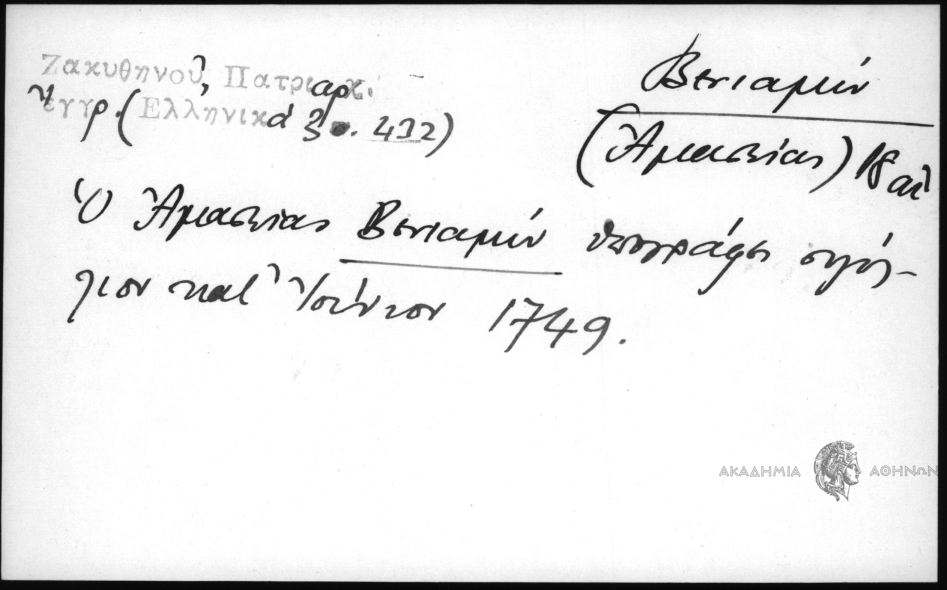 Ζακυθηνοῦ, Πατριαρχ.
ἔγγρ. (Ἑλληνικά 3 σ. 412)
Βενιαμίν
(Ἀμασείας) 18 αἰ
Ὁ Ἀμασείας Βενιαμίν ὑπογράφει σιγίλ-
λιον κατ᾽ Ἰούνιον 1749.
ΑΚΑΔΗΜΙΑ ΑΘΗΝΩΝ